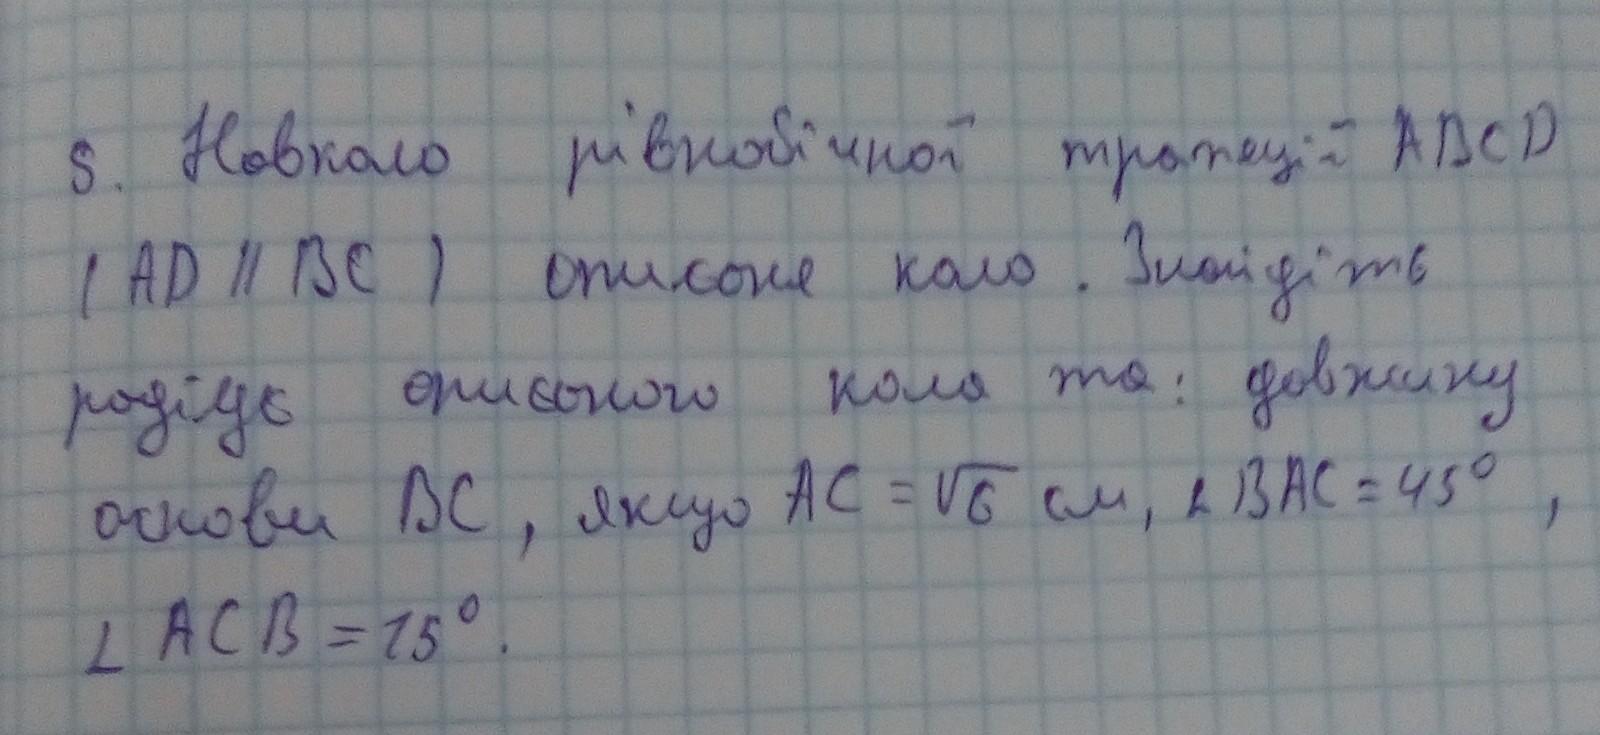 5. Навколо рівнобічної трапеції ABCD
(AD || BC) описане коло. Знайдіть
радіус описаного кола та: довжину
основи BC, якщо AC = √6 см, ∠BAC = 45°,
∠ACB = 15°.